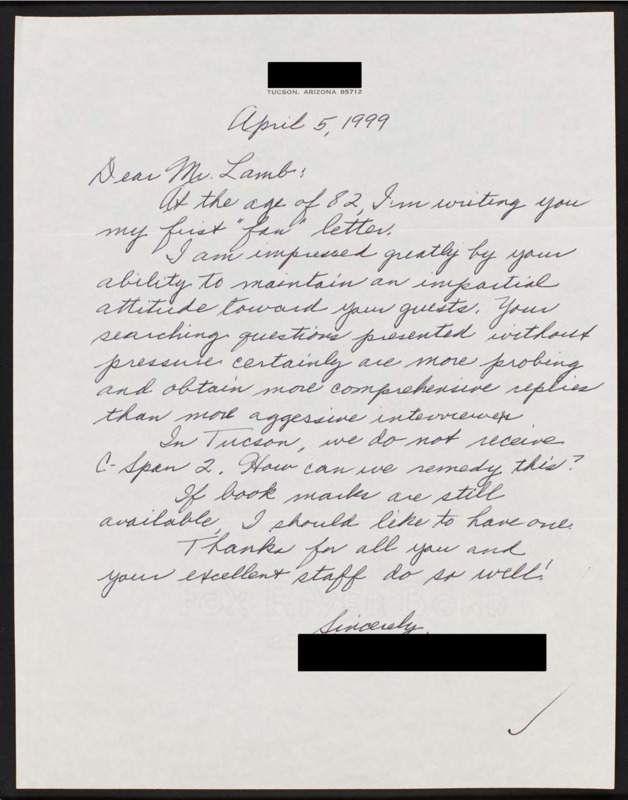 TUCSON, ARIZONA 85712
April 5, 1999
Dear Mr. Lamb:
At the age of 82, I'm writing you
my first "fan" letter.
I am impressed greatly by your
ability to maintain an impartial
attitude toward your guests. Your
searching questions presented without
pressure certainly are more probing
and obtain more comprehensive replies
than more aggessive interviewers
In Tucson, we do not receive
C-Span 2. How can we remedy this?
If book marks are still
available, I should like to have one.
Thanks for all you and
your excellent staff do so well!
Sincerely,